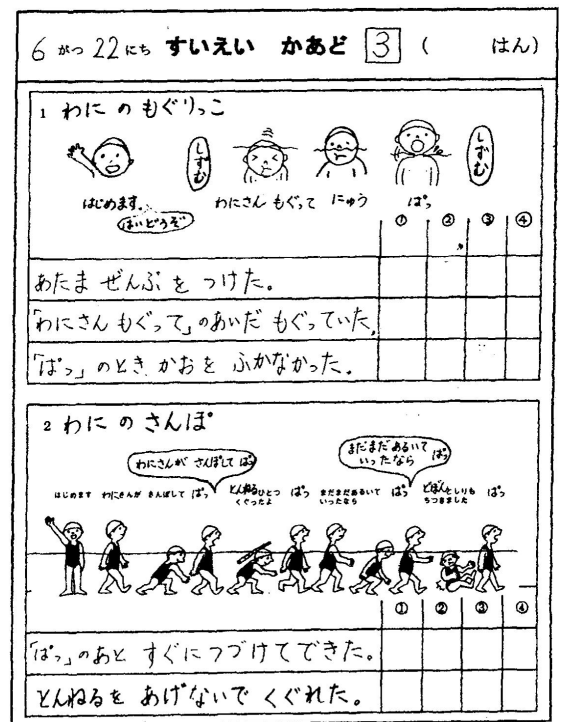 6 がつ 22 にち すいえい かあど 3 ( はん)
1 わに の もぐりっこ
しずむ しずむ
はじめます。 わにさん もぐって にゅう ぱっ
はいどうぞ
① ② ③ ④
あたま ぜんぶ を つけた。
「わにさん もぐって」のあいだ もぐっていた。
「ぱっ」のとき かおを ふかなかった。
2 わに の さんぽ
わにさんが さんぽして ぱっ
まだまだ あるいて いったなら ぱっ
はじめます わにさんが さんぽして ぱっ とんねるひとつ くぐったよ ぱっ まだまだあるいて いったなら ぱっ どぼんとしりも ちつきました ぱっ
① ② ③ ④
「ぱっ」のあと すぐに つづけて できた。
とんねるを あげないで くぐれた。